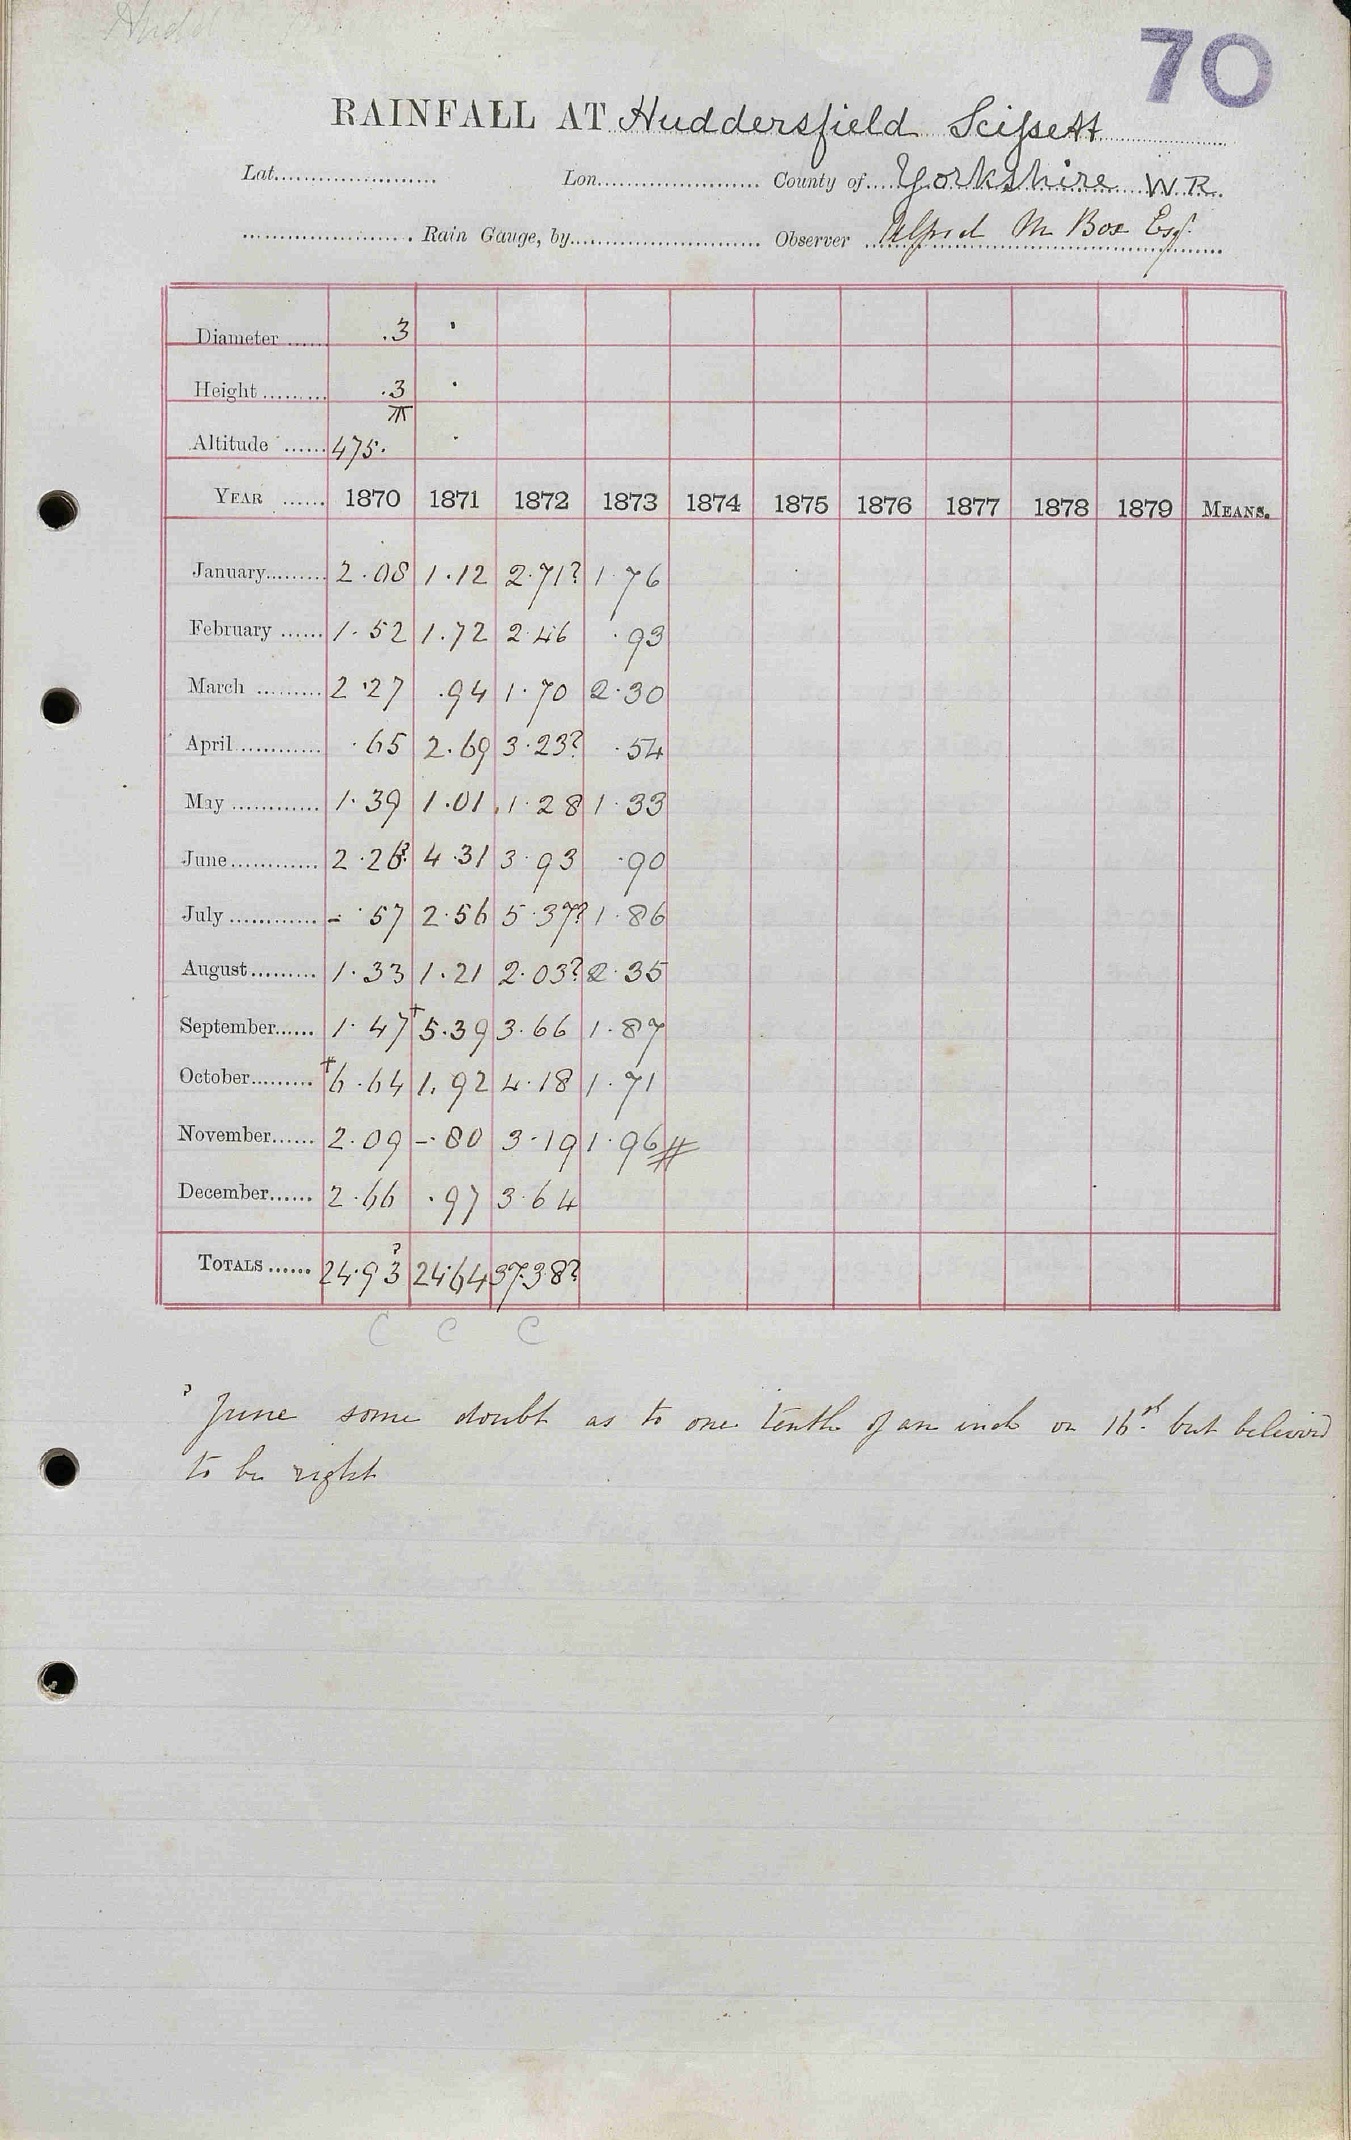 70
RAINFALL AT Huddersfield Scissett
Lat. Lon. County of Yorkshire W.R.
Rain Gauge, by Observer Alfred M Box Esq.
Diameter .3 "
Height .3 "
Altitude 475. "
YEAR 1870 1871 1872 1873 1874 1875 1876 1877 1878 1879 MEANS.
January 2.08 1.12 2.71? 1.76
February 1.52 1.72 2.46 .93
March 2.27 .94 1.70 2.30
April .65 2.69 3.23? .54
May 1.39 1.01 1.28 1.33
June 2.26? 4.31 3.93 .90
July - .57 2.56 5.37? 1.86
August 1.33 1.21 2.03? 2.35
September 1.47 +5.39 3.66 1.87
October +6.64 1.92 4.18 1.71
November 2.09 -.80 3.19 1.96 #
December 2.66 .97 3.64
TOTALS 24.93? 24.64 37.38?
C C C
? June some doubt as to one tenth of an inch on 16th but believed
to be right